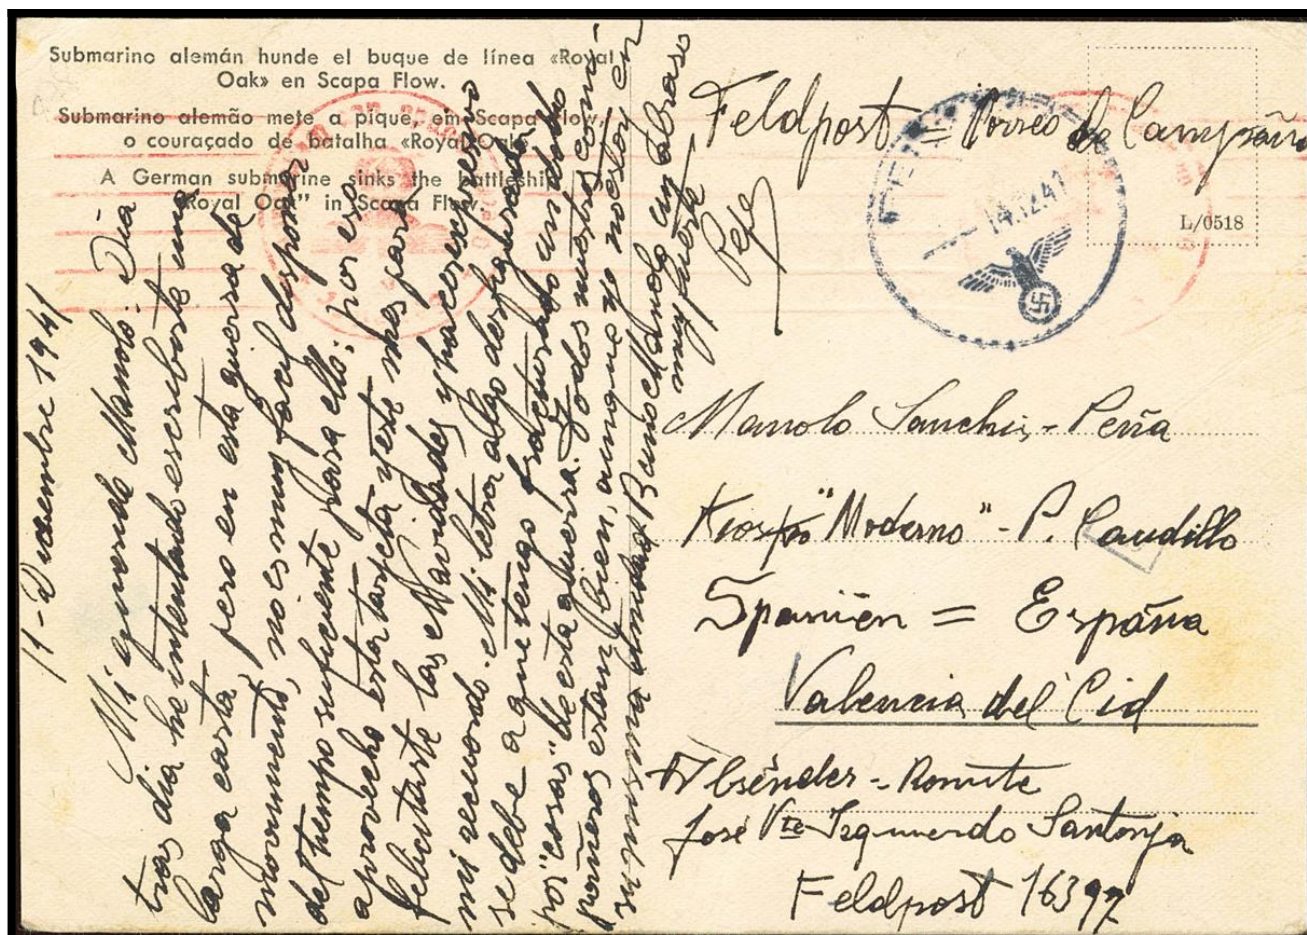 Submarino alemán hunde el buque de línea «Royal
Oak» en Scapa Flow.
Submarino alemão mete a pique, em Scapa Flow,
o couraçado de batalha «Royal Oak»
A German submarine sinks the battleship
"Royal Oak" in Scapa Flow.
11-Diciembre 1941
Mi querido Manolo: Día
tras día he intentado escribirte una
larga carta, pero en esta guerra de
movimiento, no es muy fácil disponer
del tiempo suficiente para ello; por eso
aprovecho esta tarjeta y este mes para
felicitarte las Navidades y hacer expresivo
mi recuerdo. Mi letra algo desfigurada
se debe a que tengo fracturado un dedo
por "cosas" de esta guerra. Todos nuestros com-
pañeros estan bien, aunque yo no estoy en
su misma unidad. Manolo un abraso
muy fuerte
Pepe
Feldpost = Correo de Campaña
14.12.41
L/0518
Manolo Sanchis-Peña
Kiosko "Moderno" - P. Caudillo
Spanien = España
Valencia del Cid
Absender - Remite
Jose Vte Izquierdo Santonja
Feldpost 16397